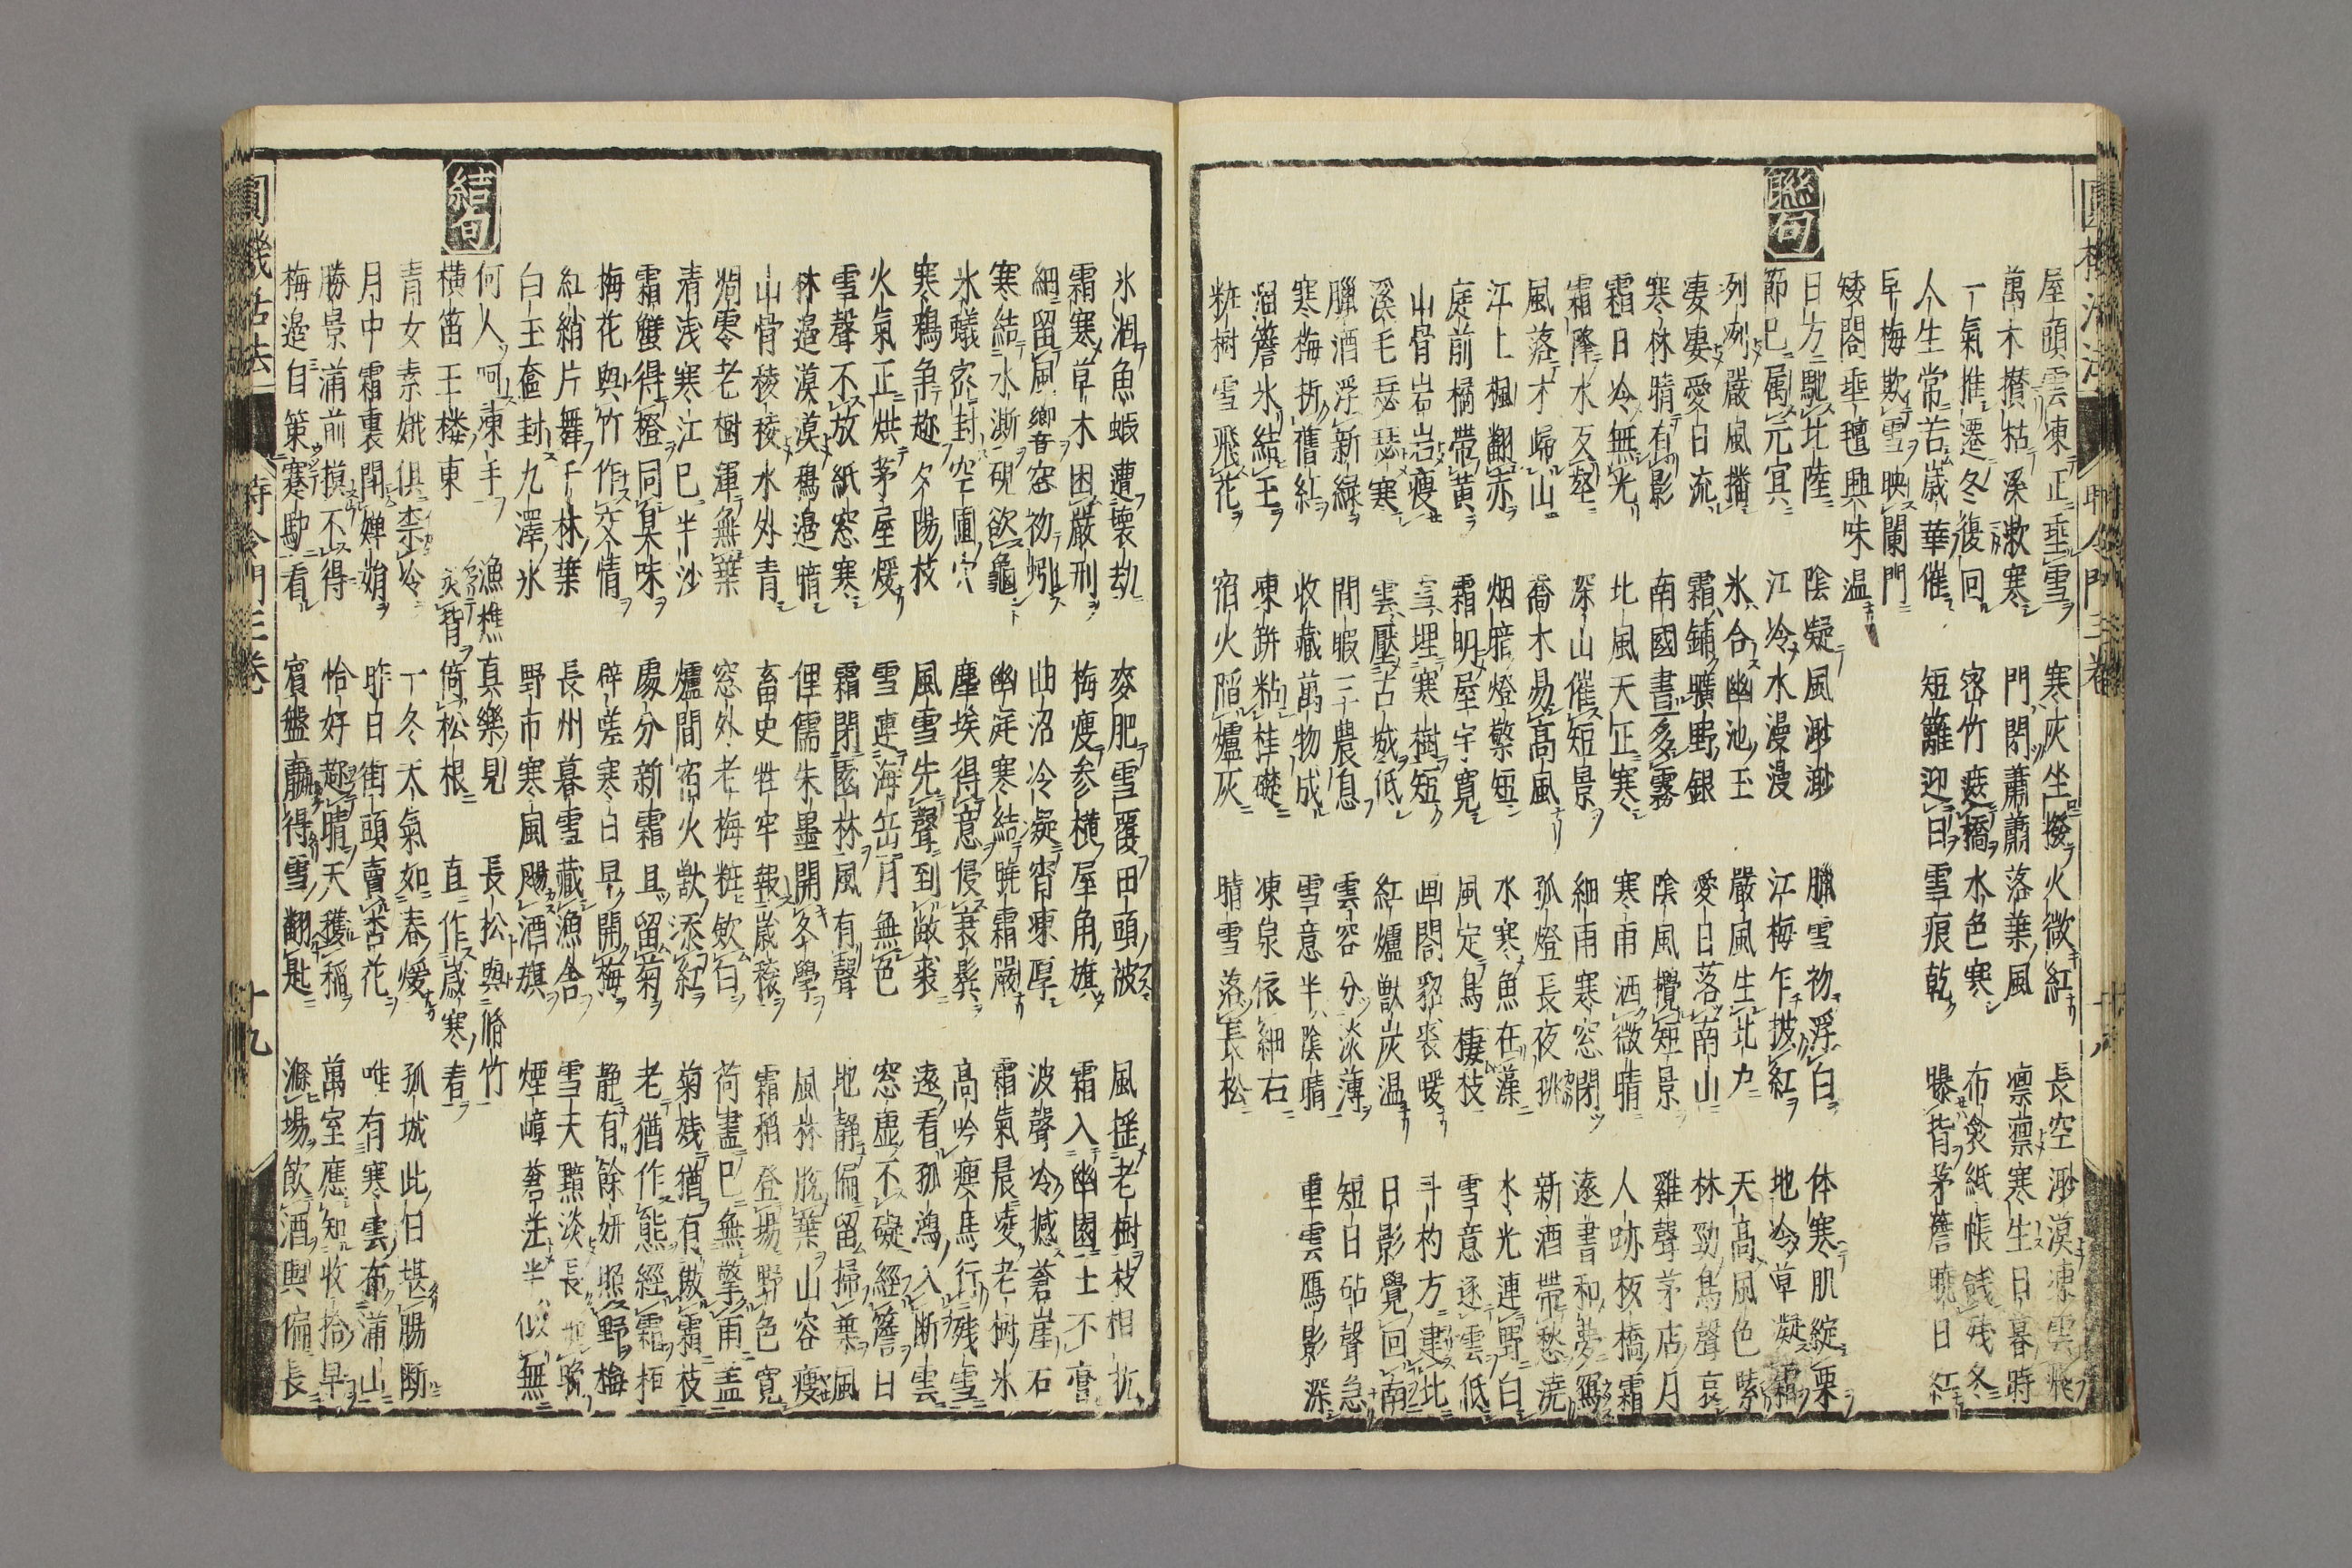 屋頭雲凍正垂雪 寒灰坐撥火微紅 長空渺漠凍雲飛
萬木攅枯溪漱寒 門閑蕭蕭落葉風 凛凛寒生日暮時
一氣推遷冬復回 密竹遮橋水色寒 布衾紙帳餞残冬
人生常苦歳華催 短籬迎日雪痕乾 曝背茅簷曉日紅
早梅欺雪映闌門
矮閤垂氊興味温
聯句
日方馳北陸 陰凝風渺渺 臘雪初浮白 体寒肌綻栗
節已属元冥 江冷水漫漫 江梅乍披紅 地冷草凝霜
冽冽嚴風播 氷合幽池玉 嚴風生北力 天高風色紫
凄凄愛日流 霜鋪曠野銀 愛日落南山 林勁鳥聲哀
寒林晴有影 南國晝多霧 陰風攪短景 雞聲茅店月
霜日冷無光 北風天正寒 寒雨洒微晴 人跡板橋霜
霜降水反壑 深山催短景 細雨寒窓閉 遠書和夢寫
風落木歸山 喬木易高風 孤燈長夜挑 新酒帶愁澆
江上楓翻赤 烟暗燈檠短 水寒魚在藻 水光連野白
庭前橘帶黄 霜明屋宇寛 風定鳥棲枝 雪意逐雲低
山骨岩岩瘦 雪埋寒樹短 画閤貂裘暖 斗杓方建北
溪毛瑟瑟寒 雲壓古城低 紅爐獣炭温 日影覺回南
臘酒浮新緑 間暇三農息 雲容分淡薄 短日砧聲急
寒梅折舊紅 收藏萬物成 雪意半陰晴 重雲鴈影深
溜簷氷結玉 凍餅粘桂礎 凍泉依細石
粧樹雪飛花 宿火陷爐灰 晴雪落長松
氷涸魚蝦遭壊劫 麥肥雪覆田頭被 風搖老樹枝相抗
霜寒草木困嚴刑 梅瘦参横屋角旗 霜入幽園土不膏
細留風響窓初蚓 曲沼冷凝宵凍厚 波聲冷撼蒼崖石
寒結水澌硯欲龜 幽庭寒結曉霜嚴 霜氣晨凌老樹氷
氷蟻密封空圃穴 塵埃得意侵衰髮 高吟瘦馬行残雪
寒鴉争趂夕陽枝 風雪先聲到敝裘 遠看孤鴻入断雲
火氣正烘茅屋煖 雪連海岳月無色 窓虚不礙經簷日
雪聲不放紙窓寒 霜閉園林風有聲 地静偏留掃葉風
林邉漠漠鴉邉暗 俚儒朱墨開冬學 風林脱葉山容瘦
山骨稜稜水外青 畜史牲牢報歳穣 霜稻登場野色寛
凋零老樹渾無葉 窓外老梅粧欸白 荷盡已無擎雨盖
清浅寒江已半沙 爐間宿火獣添紅 菊残猶有傲霜枝
霜蟹得橙同臭味 處分新霜且留菊 老猶作態經霜栢
梅花與竹作交情 辟差寒日早開梅 静有餘妍照野梅
紅綃片舞千林葉 長州暮雪藏漁舎 雪天黯淡長如晩
白玉奩封九澤氷 野市寒風颺酒旗 煙嶂蒼茫半似無
結句
何人呵凍手 漁樵真樂見 長松與脩竹
横笛玉楼東 炙背倚松根 直作歳寒看
青女素娥俱柰冷 一冬天氣如春煖 孤城此日堪腸断
月中霜裏鬪嬋娟 昨日街頭賣杏花 唯有寒雲布蒲山
勝景蒲前摸不得 恰好趂晴天穫稲 萬室應知收拾早
梅邉自策蹇馿看 賓盤贏得雪翻匙 滌場飲酒興偏長
圓機活法 時令門三卷 十八
圓機活法 時令門三卷 十九